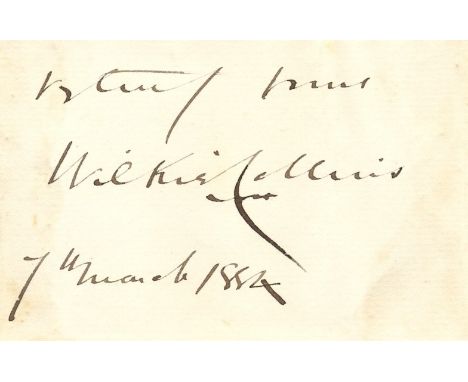 Vy truly yours
Wilkie Collins
7th March 1884